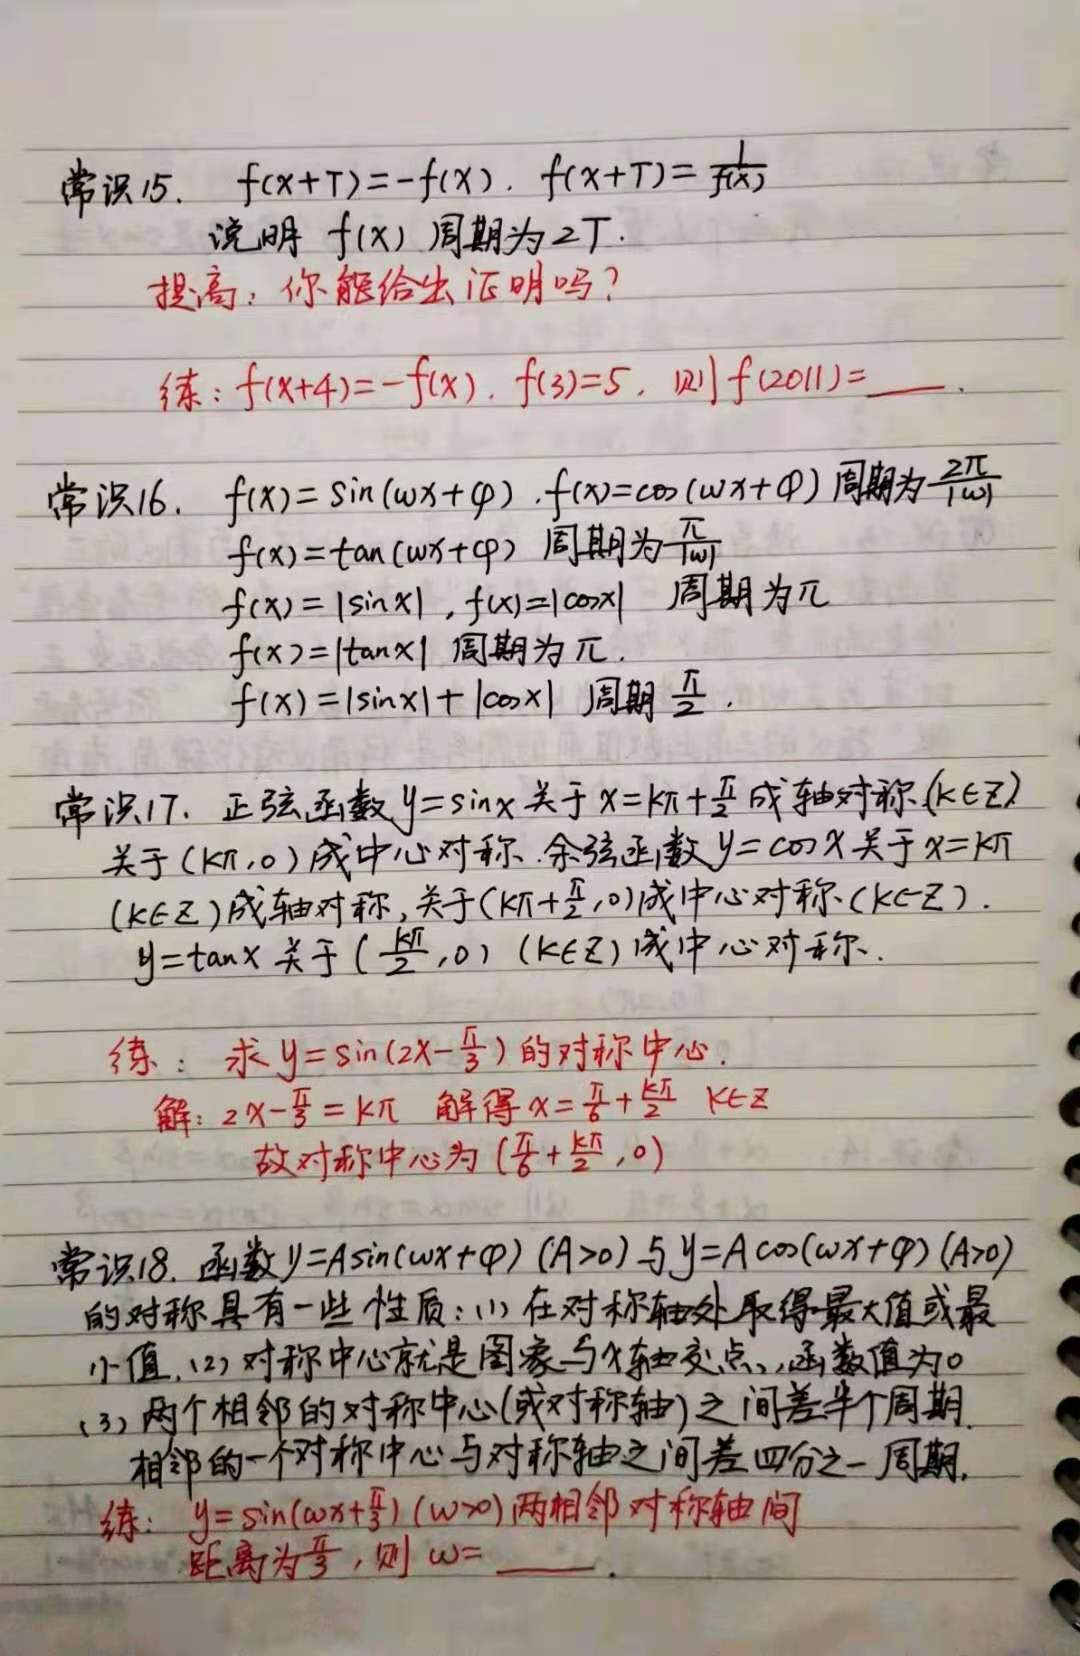 常识15. f(x+T)=-f(x). f(x+T)=1/f(x)
说明 f(x) 周期为2T.
提高: 你能给出证明吗?
练: f(x+4)=-f(x). f(3)=5, 则f(2011)=____.
常识16. f(x)=sin(ωx+φ).f(x)=cos(ωx+φ)周期为2π/|ω|
f(x)=tan(ωx+φ) 周期为π/|ω|
f(x)=|sinx|,f(x)=|cosx| 周期为π
f(x)=|tanx| 周期为π.
f(x)=|sinx|+|cosx| 周期π/2.
常识17. 正弦函数y=sinx关于x=kπ+π/2成轴对称(k∈Z)
关于(kπ,0)成中心对称.余弦函数y=cosx关于x=kπ
(k∈Z)成轴对称,关于(kπ+π/2,0)成中心对称(k∈Z).
y=tanx关于(kπ/2,0)(k∈Z)成中心对称.
练: 求y=sin(2x-π/3)的对称中心.
解: 2x-π/3=kπ 解得x=π/6+kπ/2 k∈Z
故对称中心为(π/6+kπ/2,0)
常识18. 函数y=Asin(ωx+φ)(A>0)与y=Acos(ωx+φ)(A>0)
的对称具有一些性质:(1)在对称轴处取得最大值或最
小值.(2)对称中心就是图象与x轴交点,函数值为0
(3)两个相邻的对称中心(或对称轴)之间差半个周期.
相邻的一个对称中心与对称轴之间差四分之一周期.
练: y=sin(ωx+π/3)(ω>0)两相邻对称轴间
距离为π/3,则ω=____.